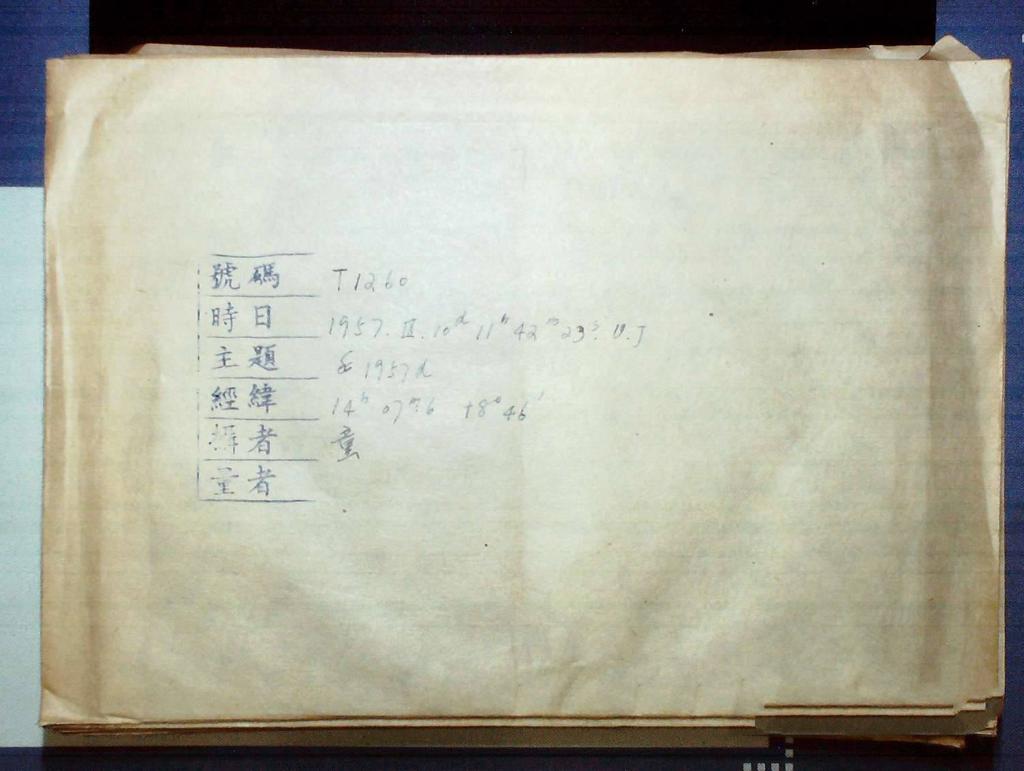 號碼 T1260
時日 1957. III. 10ᵈ 11ʰ 42ᵐ 23ˢ. U.T
主題 1957d
經緯 14ʰ 07ᵐ.6 +8° 46′
者 童
量者